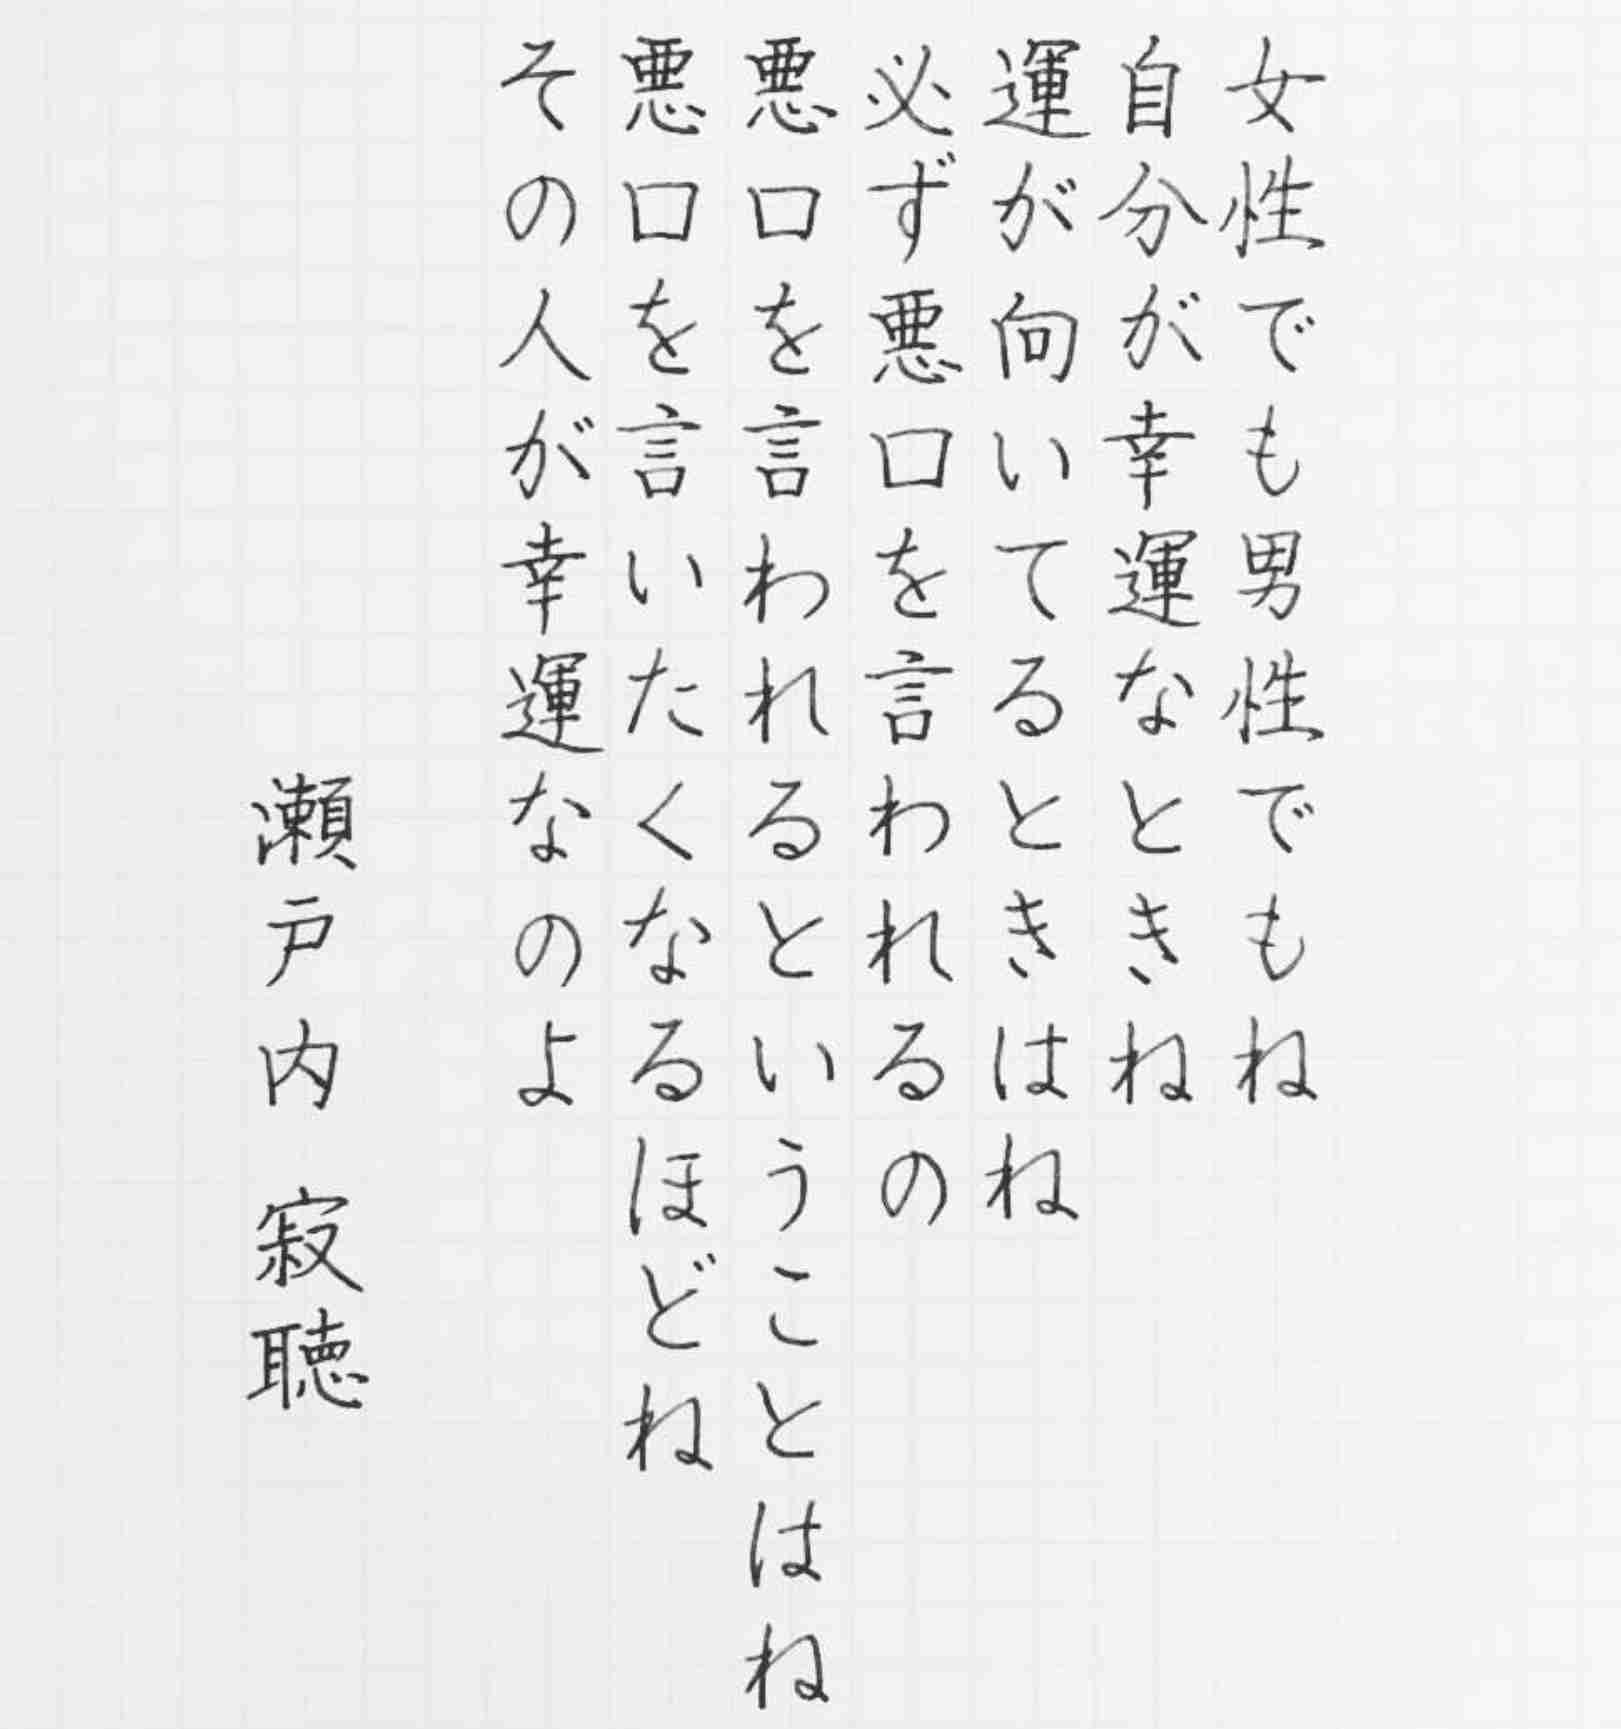 女性でも男性でもね
自分が幸運なときね
運が向いてるときはね
必ず悪口を言われるの
悪口を言われるということはね
悪口を言いたくなるほどね
その人が幸運なのよ
瀬戸内 寂聴